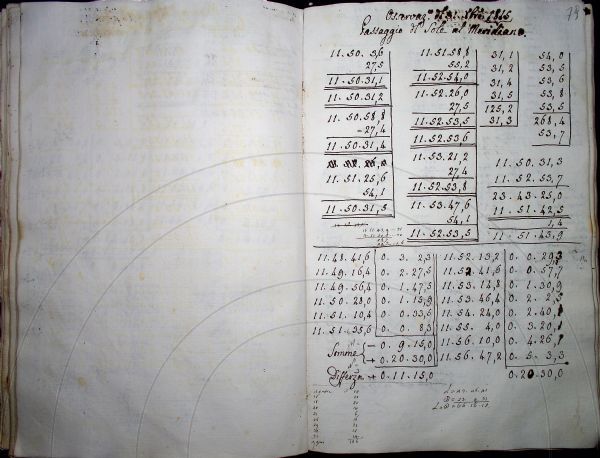 73
Passaggio del Sole al Meridiano
11.50.3,6 11.51.58,8 31,1 54,0
27,5 55,2 31,2 53,5
11.50.31,1 11.52.54,0 31,4 53,6
11.50.31,2 11.52.26,0 31,5 53,8
27,5 125,2 53,5
11.50.58,8 11.52.53,5 31,3 268,4
-27,4 11.52.53,6 53,7
11.50.31,4
11.53.21,2 11.50.31,3
11.51.25,6 27,4 11.52.53,7
54,1 11.52.53,8 23.43.25,0
11.50.31,5 11.53.47,6 11.51.42,5
54,1 1,4
11.52.53,5 11.51.43,9
11.48.41,6 0.3.2,3 11.52.13,2 0.0.29,3
11.49.16,4 0.2.27,5 11.52.41,6 0.0.57,7
11.49.56,4 0.1.47,5 11.53.14,8 0.1.30,9
11.50.28,0 0.1.15,9 11.53.46,4 0.2.2,5
11.51.10,4 0.0.33,5 11.54.24,0 0.2.40,1
11.51.35,6 0.0.8,3 11.55.4,0 0.3.20,1
Somme - 0.9.15,0 11.56.10,0 0.4.26,1
+ 0.20.30,0 11.56.47,2 0.5.3,3
Differza + 0.11.15,0 0.20.30,0